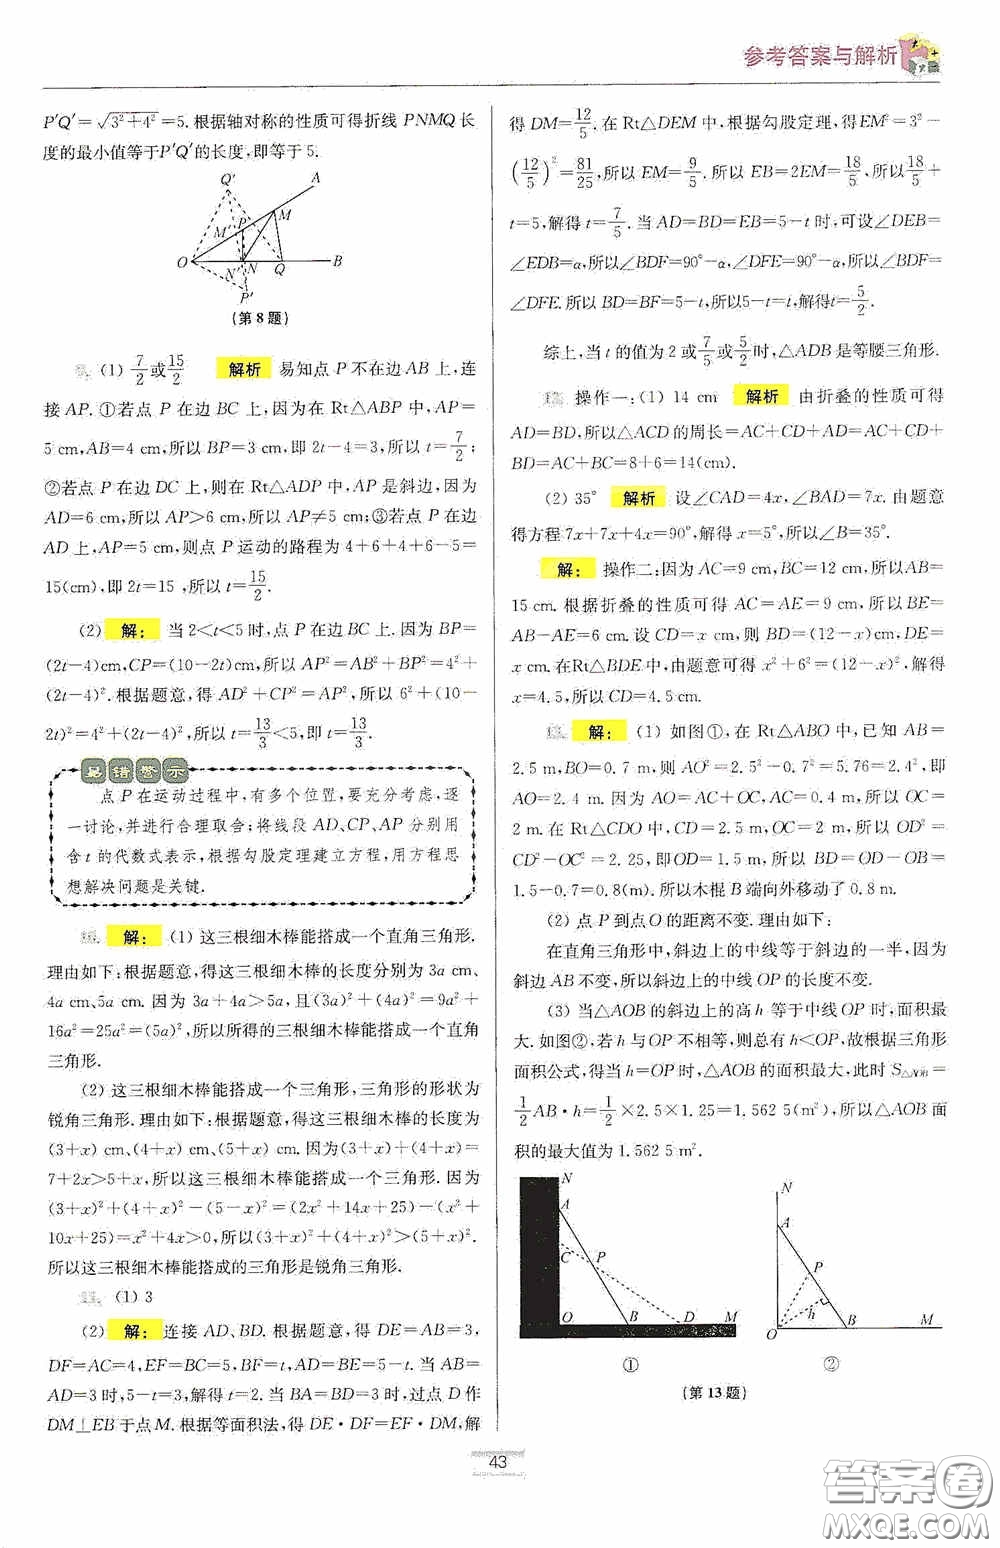 参考答案与解析
P′Q′=√(3²+4²)=5.根据轴对称的性质可得折线 PNMQ 长
度的最小值等于P′Q′的长度,即等于 5.
Q′
A
P
M
M′
O
N′
N
Q
B
P′
(第 8 题)
(1) 7/2或15/2 解析 易知点 P 不在边 AB 上,连
接 AP. ①若点 P 在边 BC 上,因为在 Rt△ABP 中,AP=
5 cm,AB=4 cm,所以 BP=3 cm,即 2t-4=3,所以 t=7/2;
②若点 P 在边 DC 上,则在 Rt△ADP 中,AP 是斜边,因为
AD=6 cm,所以 AP>6 cm,所以 AP≠5 cm;③若点 P 在边
AD 上,AP=5 cm,则点 P 运动的路程为 4+6+4+6-5=
15(cm),即 2t=15 ,所以 t=15/2.
(2) 解: 当 2<t<5 时,点 P 在边 BC 上. 因为 BP=
(2t-4)cm,CP=(10-2t)cm,所以 AP²=AB²+BP²=4²+
(2t-4)².根据题意,得 AD²+CP²=AP²,所以 6²+(10-
2t)²=4²+(2t-4)²,所以 t=13/3<5,即 t=13/3.
易错警示
点 P 在运动过程中,有多个位置,要充分考虑,逐
一讨论,并进行合理取舍;将线段 AD、CP、AP 分别用
含 t 的代数式表示,根据勾股定理建立方程,用方程思
想解决问题是关键.
解: (1) 这三根细木棒能搭成一个直角三角形.
理由如下:根据题意,得这三根细木棒的长度分别为 3a cm、
4a cm、5a cm. 因为 3a+4a>5a,(3a)²+(4a)²=9a²+
16a²=25a²=(5a)²,所以所得的三根细木棒能搭成一个直角
三角形.
(2) 这三根细木棒能搭成一个三角形,三角形的形状为
锐角三角形. 理由如下:根据题意,得这三根细木棒的长度为
(3+x) cm、(4+x) cm、(5+x) cm. 因为(3+x)+(4+x)=
7+2x>5+x,所以这三根细木棒能搭成一个三角形. 因为
(3+x)²+(4+x)²-(5-x)²=(2x²+14x+25)-(x²+
10x+25)=x²+4x>0,所以(3+x)²+(4+x)²>(5+x)².
所以这三根细木棒能搭成的三角形是锐角三角形.
(1) 3
(2) 解: 连接 AD、BD. 根据题意,得 DE=AB=3,
DF=AC=4,EF=BC=5,BF=t,AD=BE=5-t. 当 AB=
AD=3 时,5-t=3,解得 t=2. 当 BA=BD=3 时,过点 D 作
DM⊥EB 于点 M. 根据等面积法,得 DE·DF=EF·DM,解
得 DM=12/5. 在 Rt△DEM 中,根据勾股定理,得EM²=3²-
(12/5)²=81/25,所以 EM=9/5. 所以 EB=2EM=18/5,所以18/5+
t=5,解得 t=7/5. 当 AD=BD=EB=5-t 时,可设∠DEB=
∠EDB=α,所以∠BDF=90°-α,∠DFE=90°-α,所以∠BDF=
∠DFE. 所以 BD=BF=5-t,所以5-t=t,解得t=5/2.
综上,当 t 的值为 2 或7/5或5/2时,△ADB 是等腰三角形.
操作一:(1) 14 cm 解析 由折叠的性质可得
AD=BD,所以△ACD 的周长=AC+CD+AD=AC+CD+
BD=AC+BC=8+6=14(cm).
(2) 35° 解析 设∠CAD=4x,∠BAD=7x. 由题意
得方程7x+7x+4x=90°,解得 x=5°,所以∠B=35°.
解: 操作二:因为 AC=9 cm,BC=12 cm,所以AB=
15 cm. 根据折叠的性质可得 AC=AE=9 cm,所以 BE=
AB-AE=6 cm. 设 CD=x cm,则 BD=(12-x)cm,DE=
x cm. 在Rt△BDE 中,由题意可得 x²+6²=(12-x)²,解得
x=4.5,所以 CD=4.5 cm.
解: (1) 如图①,在 Rt△ABO 中,已知 AB=
2.5 m,BO=0.7 m,则 AO²=2.5²-0.7²=5.76=2.4²,即
AO=2.4 m. 因为 AO=AC+OC,AC=0.4 m,所以 OC=
2 m. 在 Rt△CDO 中,CD=2.5 m,OC=2 m,所以 OD²=
CD²-OC²=2.25,即OD=1.5 m,所以 BD=OD-OB=
1.5-0.7=0.8(m).所以木棍 B 端向外移动了 0.8 m.
(2) 点 P 到点 O 的距离不变. 理由如下:
在直角三角形中,斜边上的中线等于斜边的一半,因为
斜边 AB 不变,所以斜边上的中线 OP 的长度不变.
(3) 当△AOB 的斜边上的高 h 等于中线 OP 时,面积最
大. 如图②,若 h 与 OP 不相等,则总有 h<OP,故根据三角形
面积公式,得当 h=OP 时,△AOB 的面积最大,此时 S△AOB=
1/2 AB·h=1/2×2.5×1.25=1.562 5(m²),所以△AOB 面
积的最大值为 1.562 5 m².
N
A
C
P
O
B
D
M
①
N
A
P
h
O
B
M
②
(第 13 题)
43
答案卷
MXQE.COM